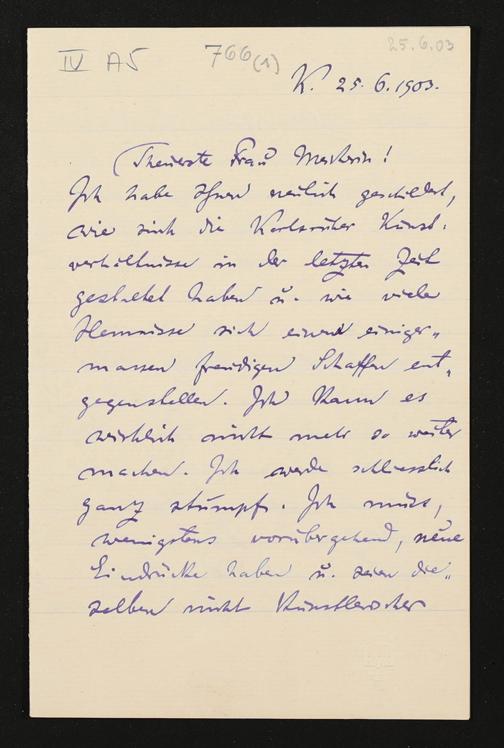 IV A5
766(1)
25.6.03
K. 25. 6. 1903.
Theuerste Frau Meisterin!
Ich habe Ihnen neulich geschildert,
wie sich die Karlsruher Kunst-
verhältnisse in der letzten Zeit
gestaltet haben u. wie viele
Hemnisse sich einem einiger-
massen freudigen Schaffen ent-
gegenstellen. Ich kann es
wirklich nicht mehr so weiter
machen. Ich werde schliesslich
ganz stumpf. Ich muss,
wenigstens vorübergehend, neue
Eindrücke haben u. seien die-
selben nicht künstlerischer